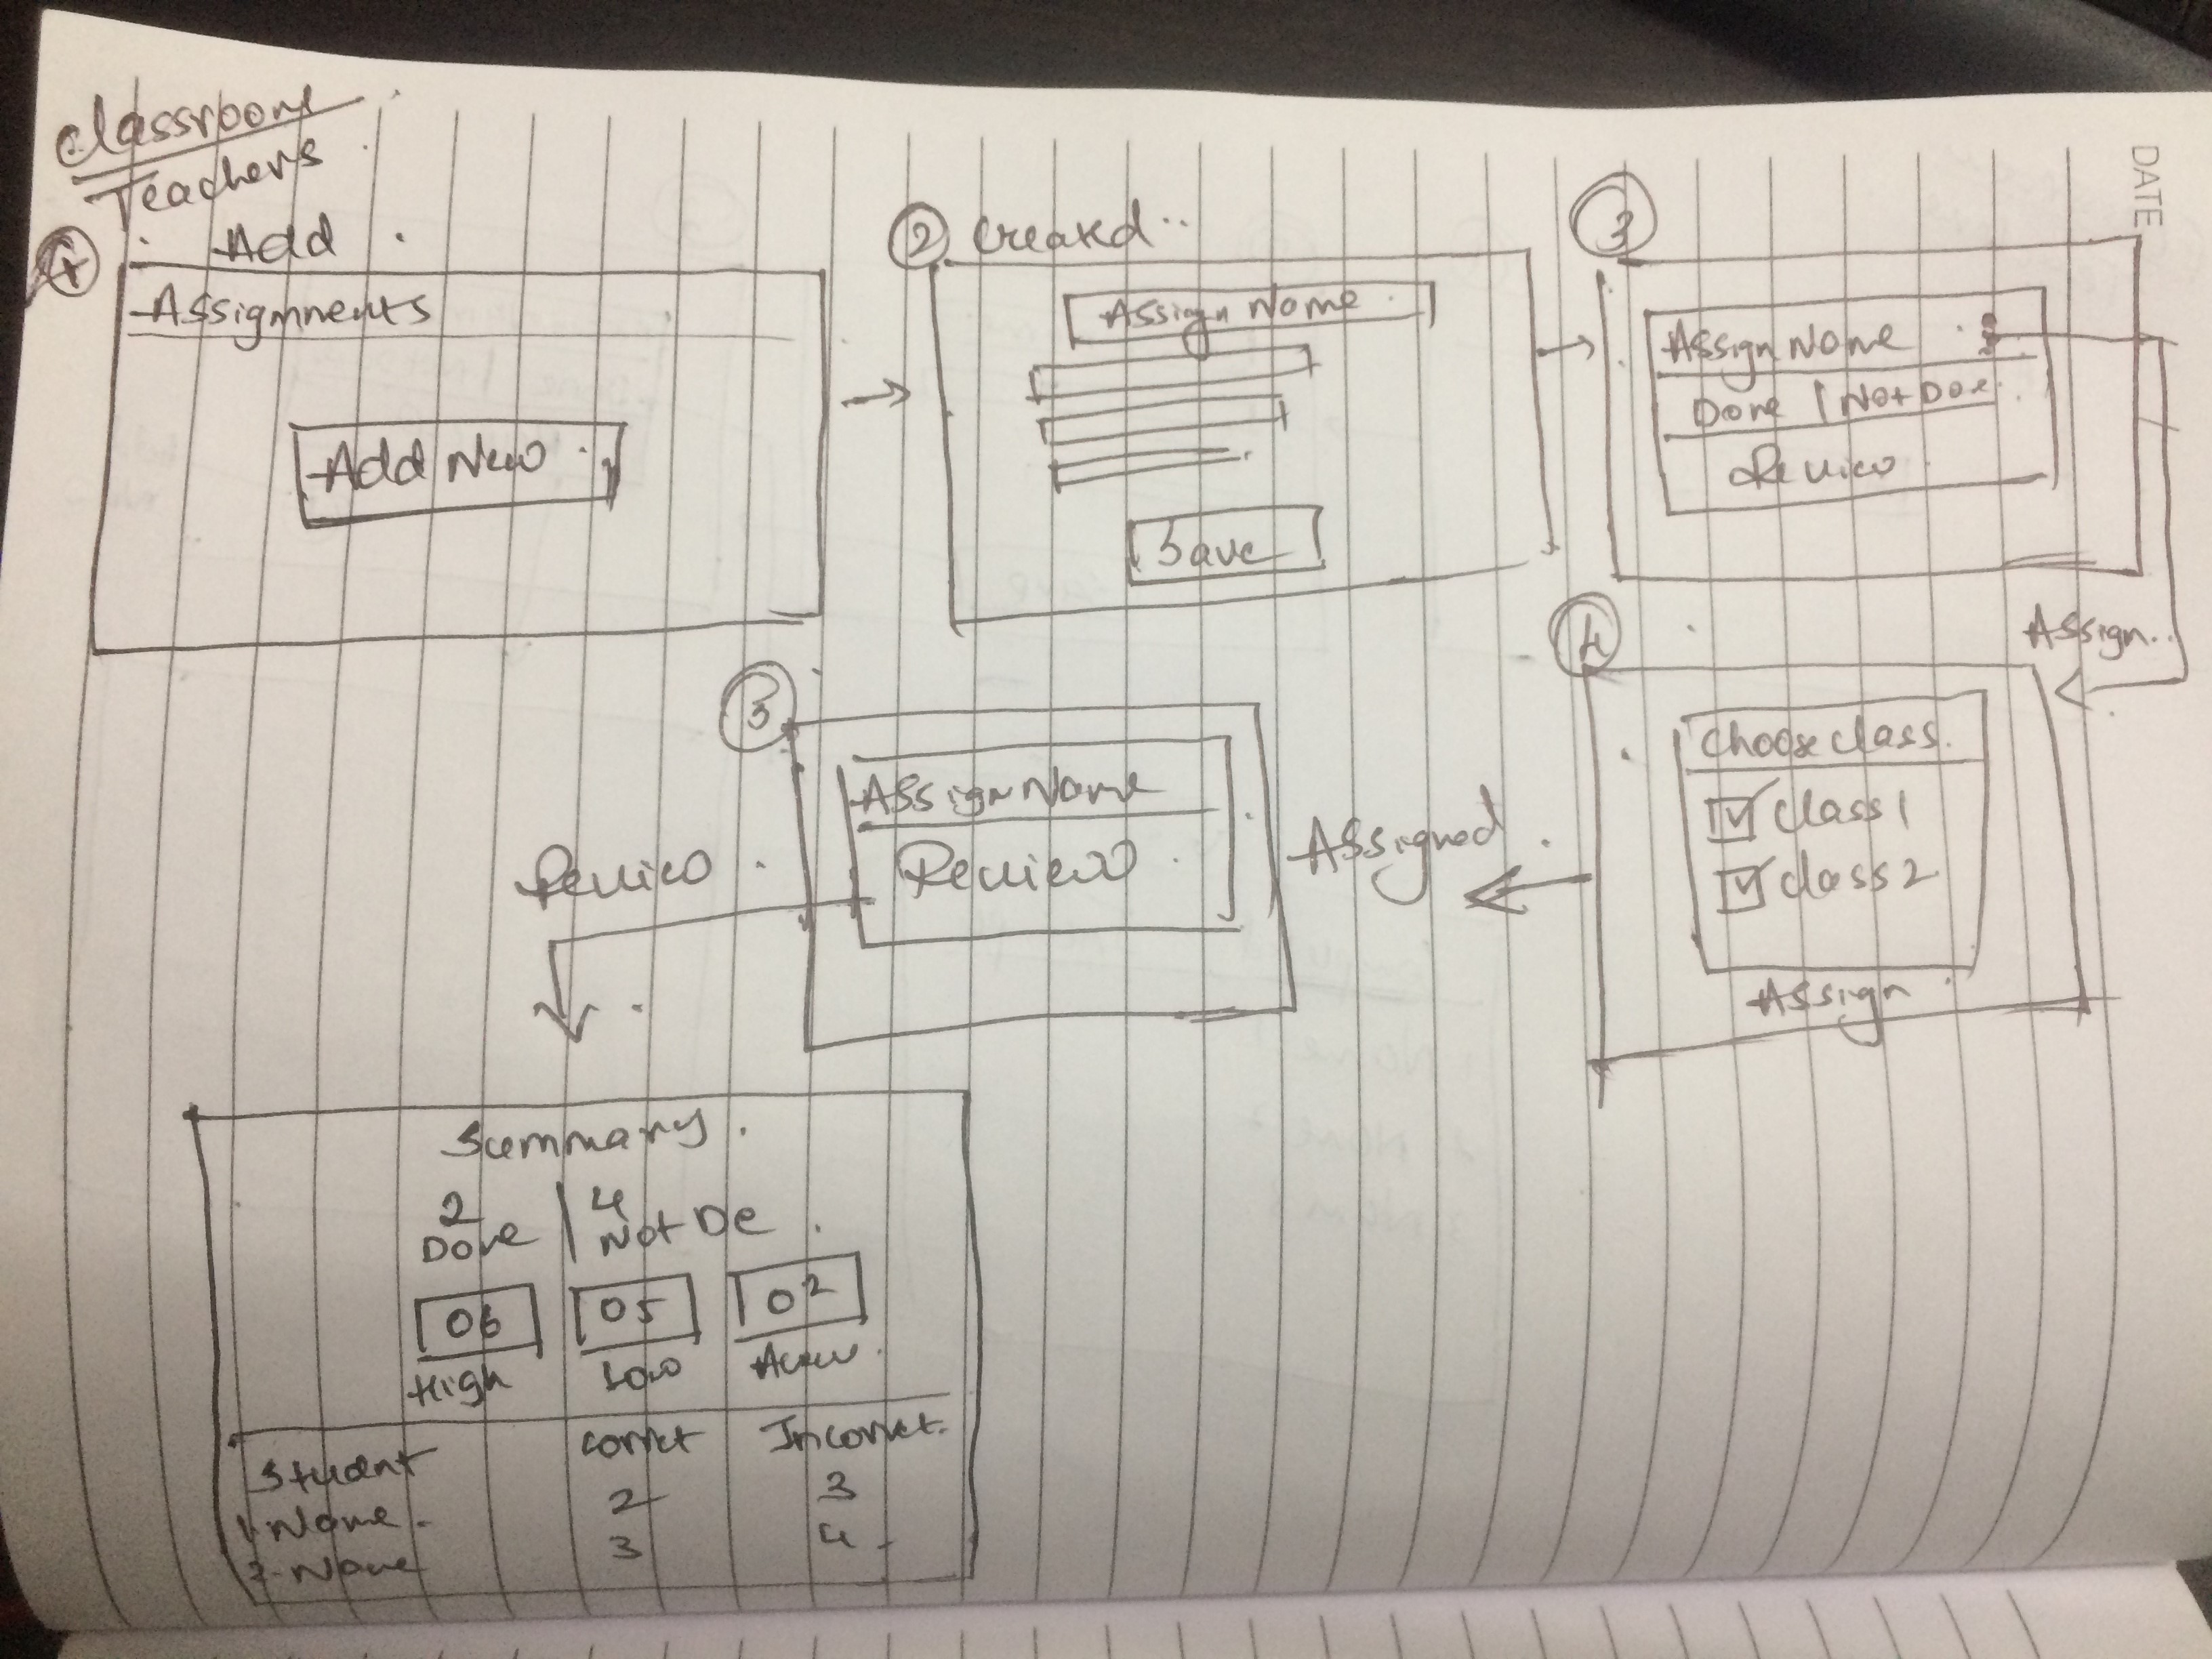 Classroom
Teachers
1
Add
Assignments
Add New
2 Created..
Assign Name
Save
3
Assign Name
Done | Not Doe
Review
Assign..
4
Choose class.
class 1
class 2
Assign
Assigned
5
Assign Name
Review
Review
Summary.
2 | 4
Done | Not De
06 05 02
High Low
Student Corrct Incorrct.
1. Name. 2 3
2. Name 3 4
DATE